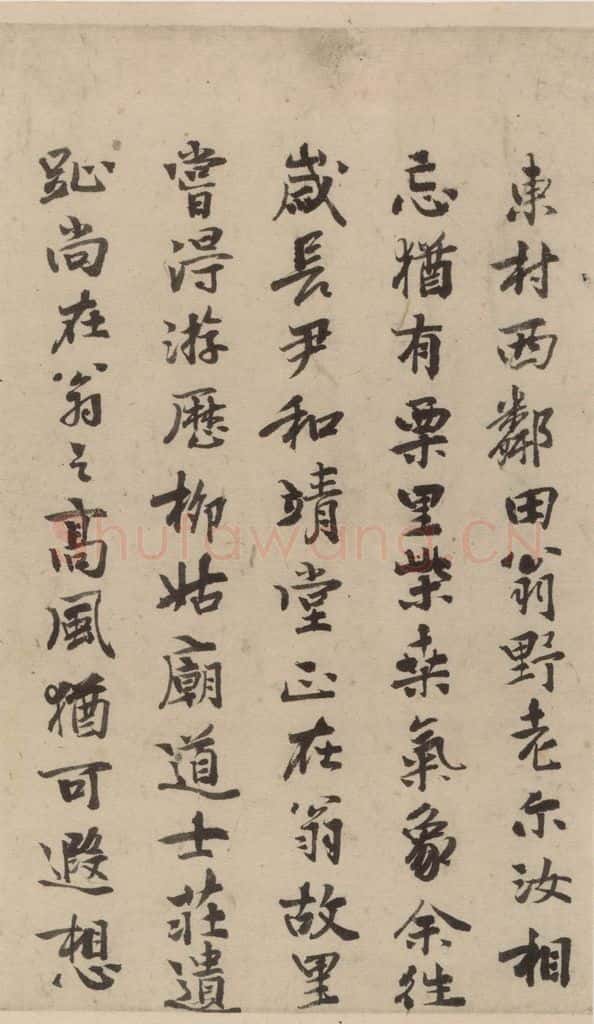 東村西鄰田翁野老尔汝相
忘猶有栗里柴桒氣象余往
歲長尹和靖堂正在翁故里
嘗淂游歷柳姑廟道士莊遺
趾尚在翁之髙風猶可遐想
shufawang.CN